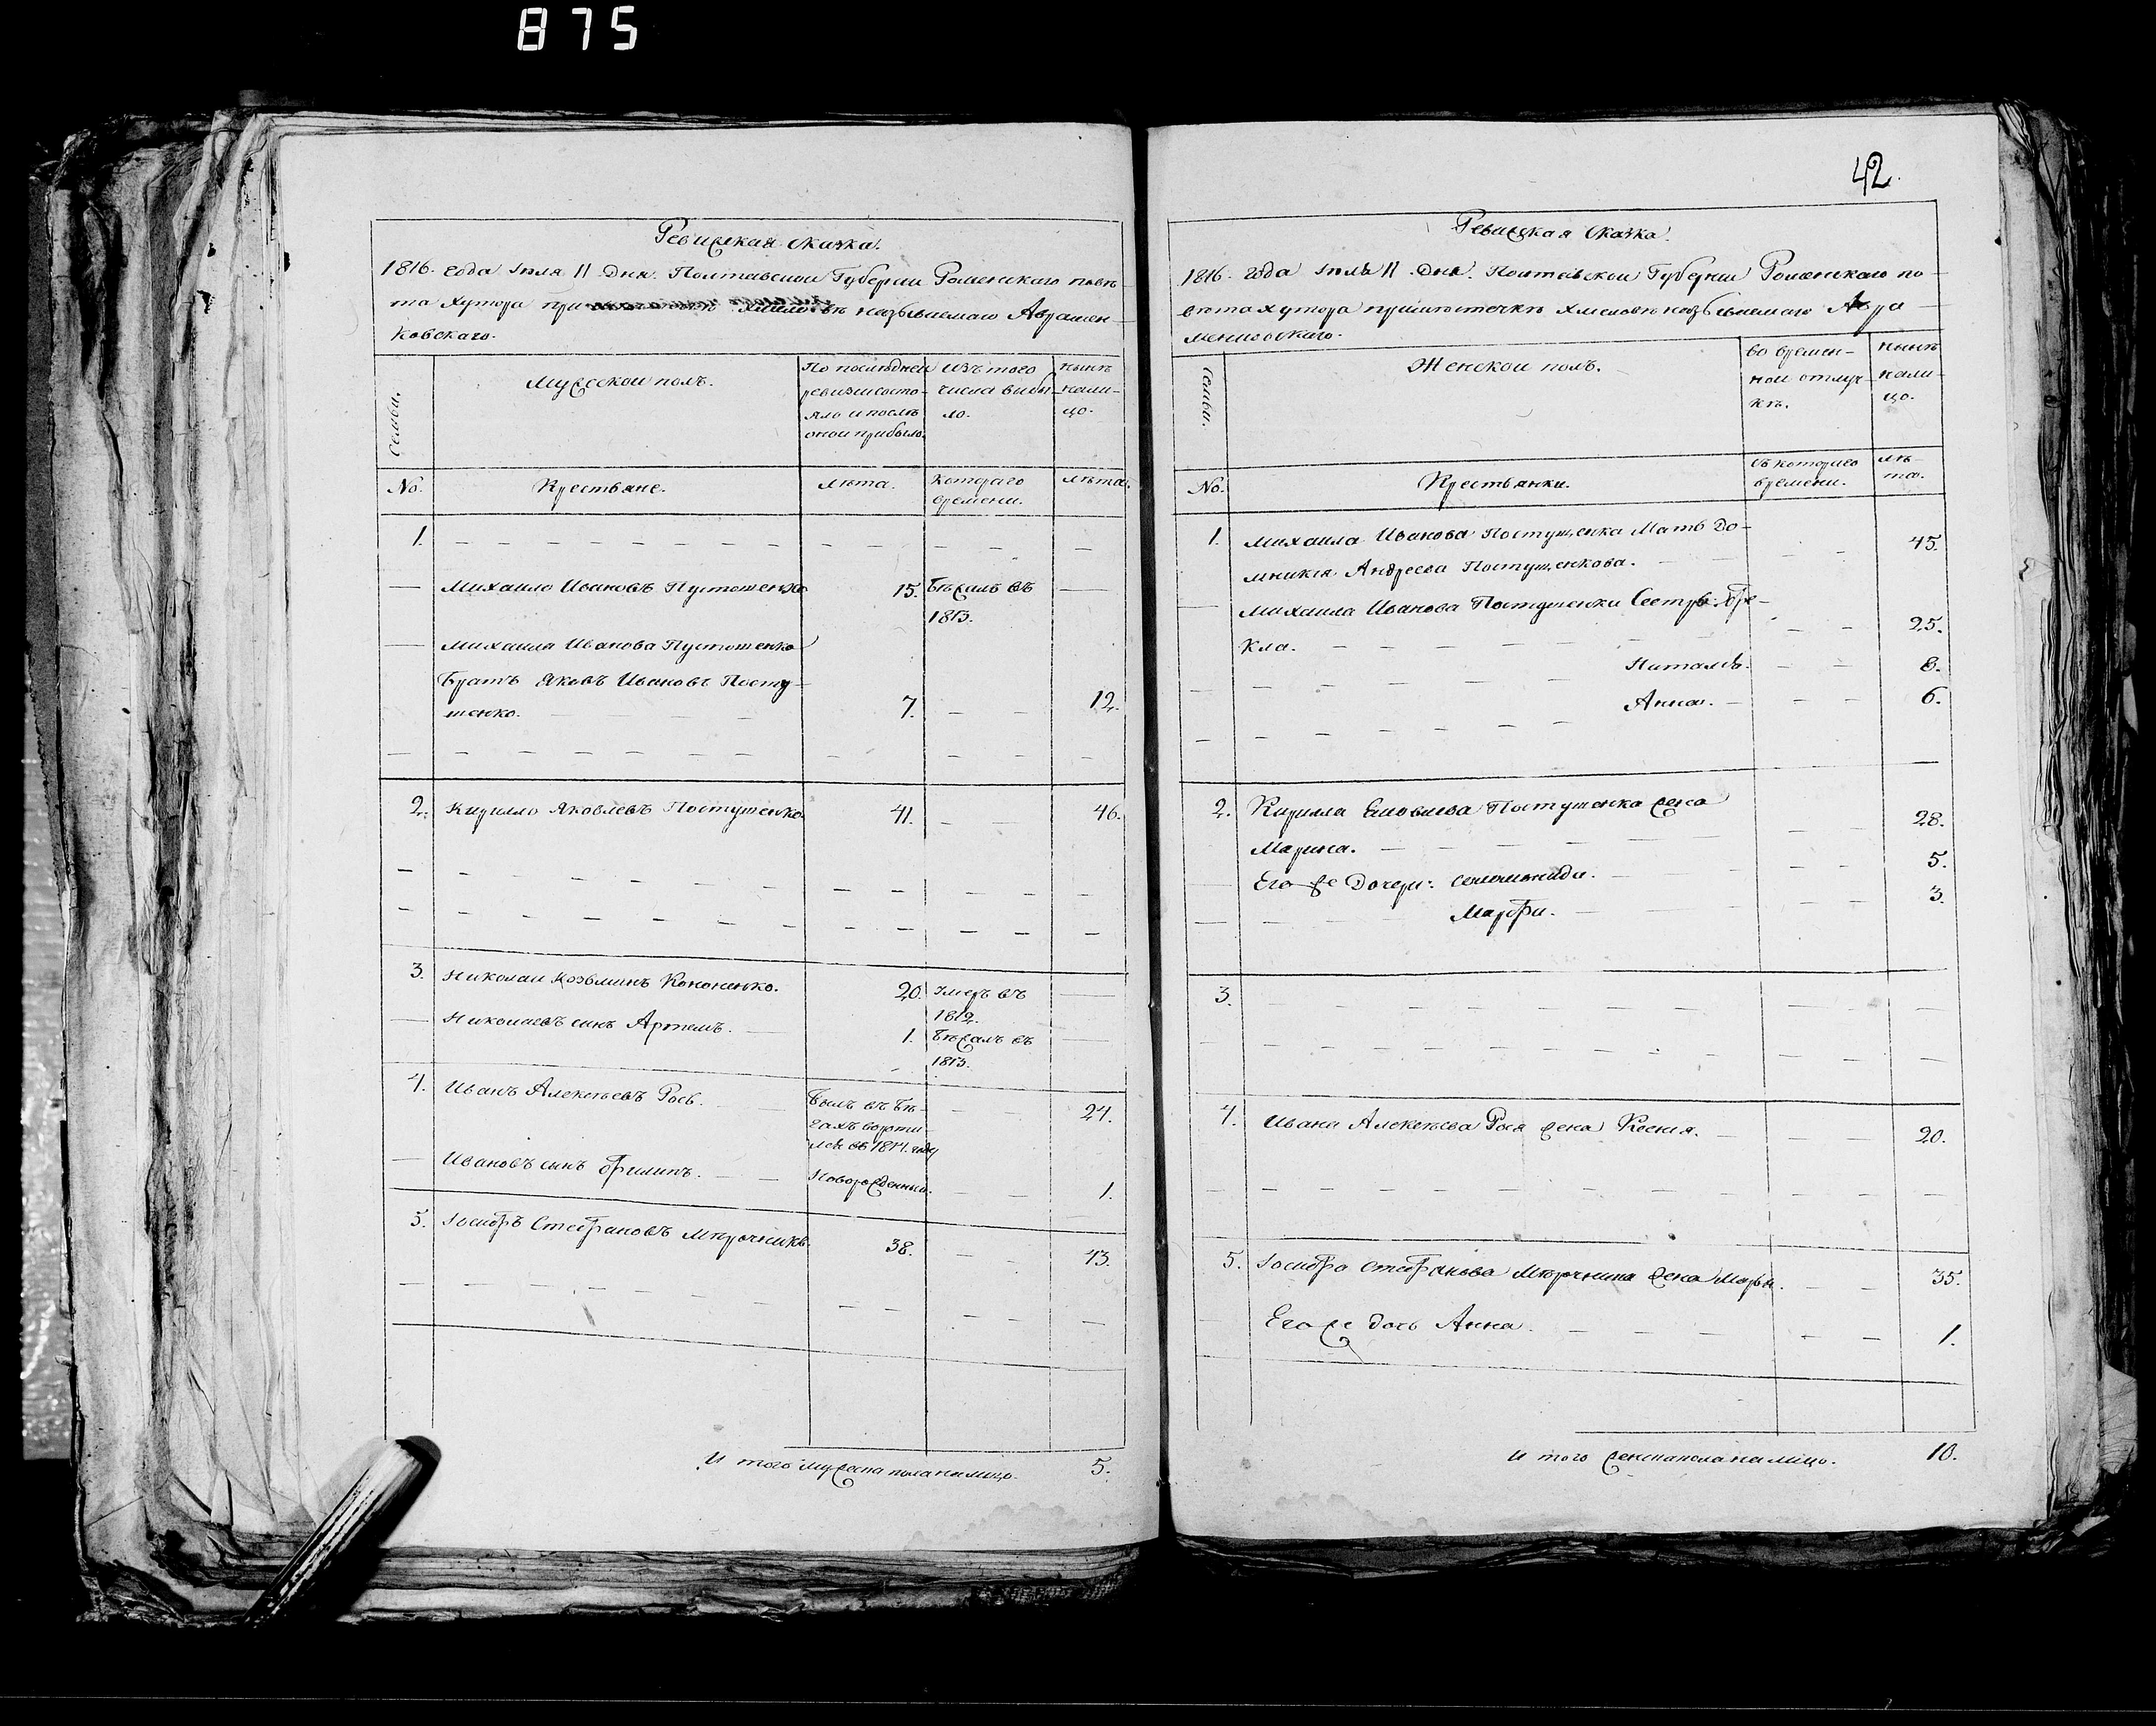 875
42.
Ревижская сказка.
1816. года Июля 11 дня. Полтавской Губернии Роменскаго повѣ-
та хутора при Хмеловѣ называемаго Аврамен-
ковскаго.
Семьи.
Мужескои полъ.
По последней ревизии состо-
яло и послѣ
оной прибыло.
Изъ того
числа выбы-
ло.
Нынѣ
нали-
цо.
No.
Крестьяне.
лѣта.
котораго
времени.
лѣта.
1.
Михаило Ивановъ Пустошенко 15. Бѣжалъ въ
1813.
Михаила Иванова Пустошенко
Братъ Яковъ Ивановъ Посту-
шенко. 7. 12.
2. Кирилло Яковлевъ Постушенко. 41. 46.
3. Николаи Козьминъ Кононенко. 20. Умеръ въ
1812.
Николаевъ синъ Артемъ. 1. Бѣжалъ въ
1813.
4. Иванъ Алексѣевъ Рось. Былъ въ бѣ- 24.
гахъ вороти-
лся въ 1814. году
Ивановъ синъ Филипъ. Новорожденный. 1.
5. Иосифъ Стефановъ Мѣрочникъ. 38. 43.
И того мужеска пола налицо. 5.
Ревижская сказка.
1816. года Июля 11 дня. Полтавской Губернии Роменскаго по-
вѣта хутора при мѣстечкѣ Хмеловѣ называемаго Авра
менковскаго.
Семьи.
Женскои полъ.
Во времен-
ной отлуч-
кѣ.
Нынѣ
нали-
цо.
No.
Крестьянки.
Съ котораго
времени.
лѣ-
та.
1. Михаила Иванова Постушенка Мать До-
мникия Андреева Постушенкова. 45.
Михаила Иванова Постушенки Сестры: Фе-
кла. 25.
Наталья. 8.
Анна. 6.
2. Кирилла Яковлева Постушенка жена
Марина. 28.
Его же Дочери: Соломониди. 5.
Марфи. 3.
3.
4. Ивана Алексѣева Рося жена Ксения. 20.
5. Иосифа Стефанова Мѣрочника жена Марья. 35.
Его же дочь Анна. 1.
И того женска пола налицо. 10.